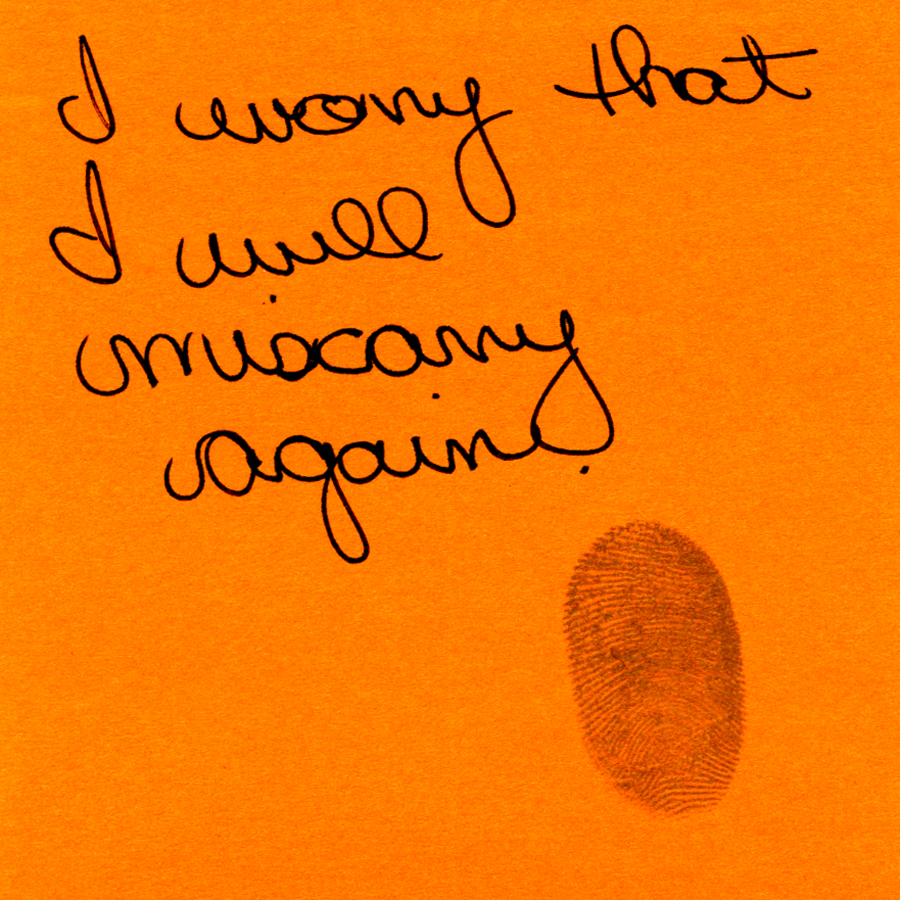 I worry that
I will
miscarry
again.